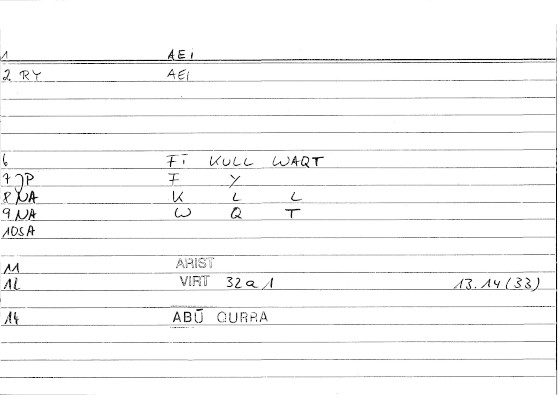 1 AEI
2 RY AEI
6 FĪ KULL WAQT
7 JP F Y
8 NA K L L
9 NA W Q T
10 SA
11 ARIST
12 VIRT 32a1 13.14(33)
14 ABŪ QURRA